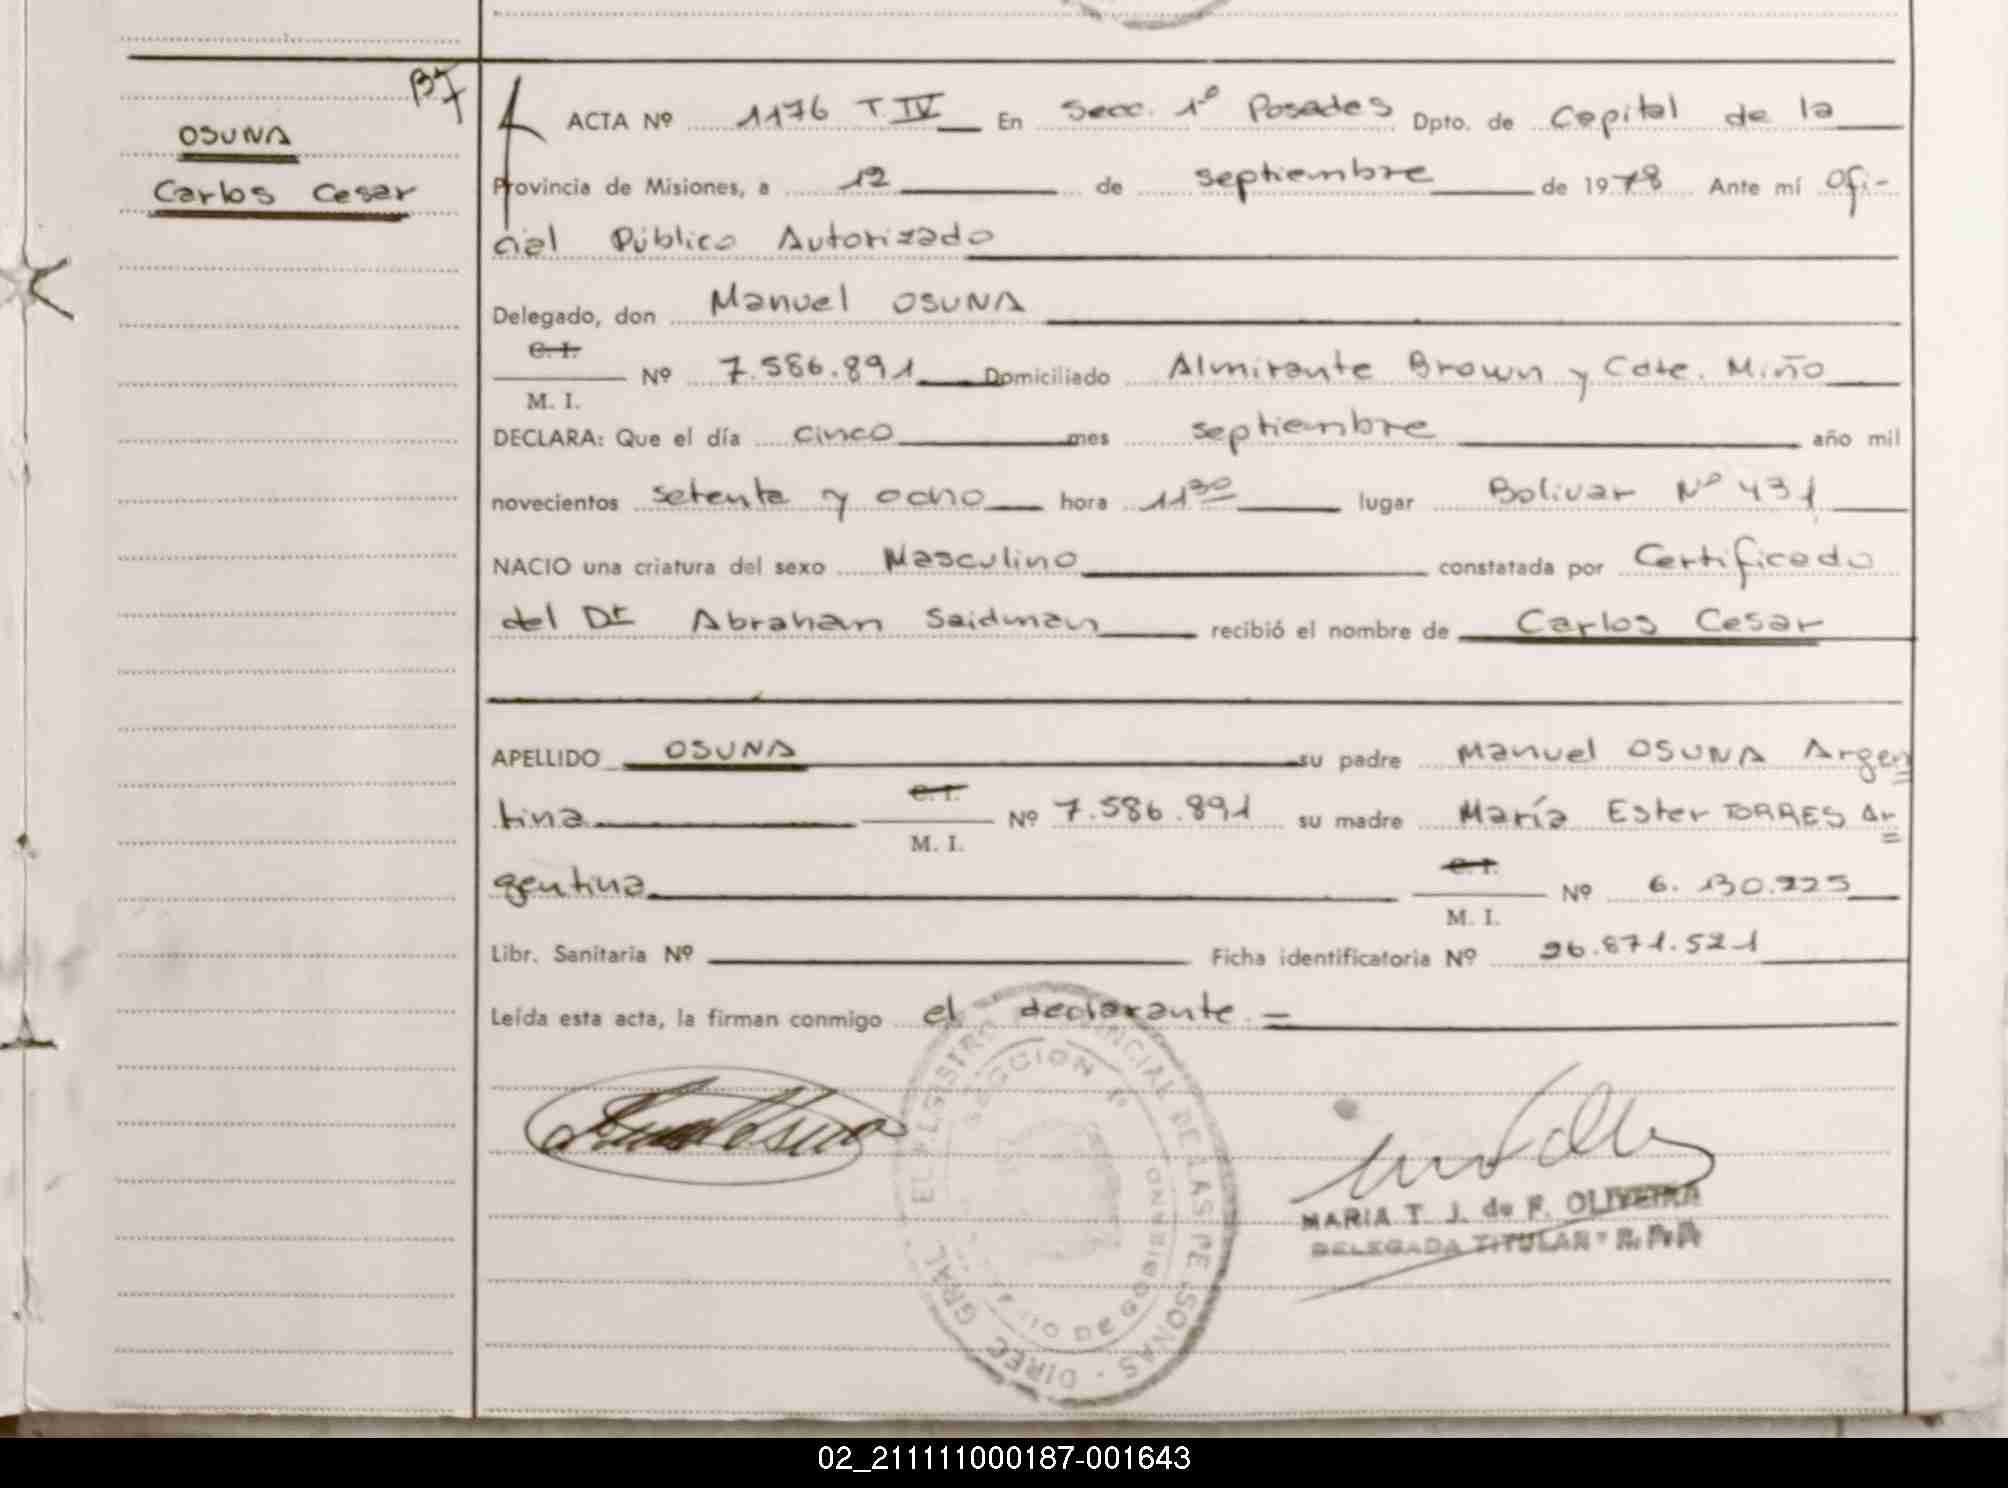 OSUNA
Carlos Cesar
ACTA Nº 1176 T IV En Secc. 1º Posadas Dpto. de Capital de la
Provincia de Misiones, a 12 de septiembre de 1978 Ante mí Ofi-
cial Público Autorizado
Delegado, don Manuel OSUNA
C. I.
Nº 7.586.891 Domiciliado Almirante Brown y Cdte. Miño
M. I.
DECLARA: Que el día cinco mes septiembre año mil
novecientos setenta y ocho hora 11 30 lugar Bolivar Nº 431
NACIO una criatura del sexo Masculino constatada por Certificado
del Dr Abraham Saidman recibió el nombre de Carlos Cesar
APELLIDO OSUNA su padre Manuel OSUNA Argen
tina C. I. Nº 7.586.891 su madre María Ester TORRES Ar
M. I.
gentina C. I. Nº 6.130.225
M. I.
Libr. Sanitaria Nº Ficha identificatoria Nº 26.871.521
Leída esta acta, la firman conmigo el declarante.=
SECCION 1º
DIREC. GRAL. DE LAS PERSONAS
DE GOBIERNO
MARIA T. J. de F. OLIVEIRA
DELEGADA TITULAR
02_211111000187-001643